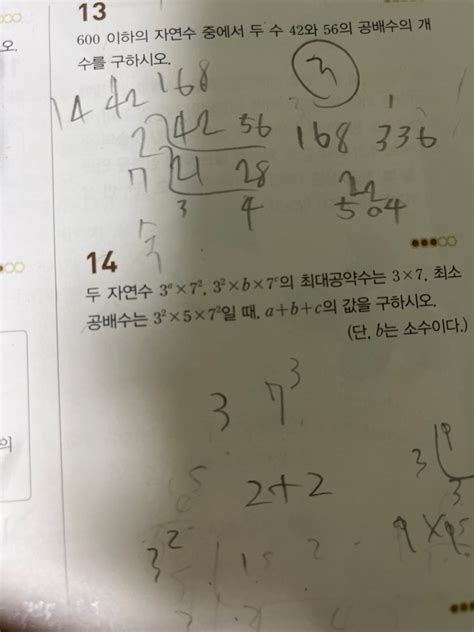 13
600 이하의 자연수 중에서 두 수 42와 56의 공배수의 개
수를 구하시오.
오.
3
14 42 168
2 42 56
168 336
7 21 28
504
3 4
14
두 자연수 3ᵃ×7², 3²×b×7ᶜ의 최대공약수는 3×7, 최소
공배수는 3²×5×7²일 때, a+b+c의 값을 구하시오.
(단, b는 소수이다.)
3 7³
의
2+2
3
3
3² 15 2